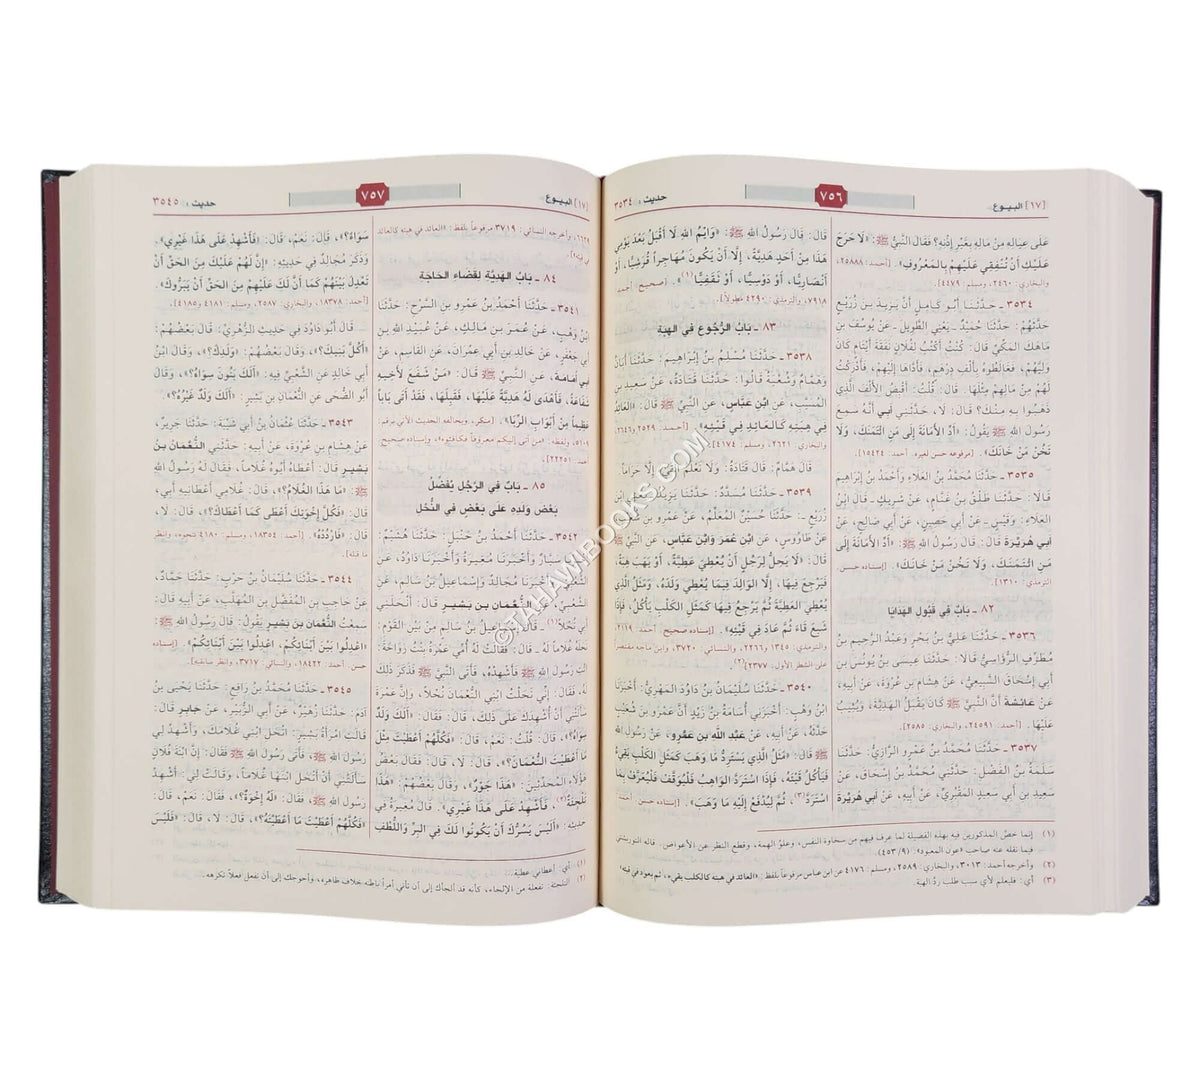 [١٧] البيوع
٧٥٦
حديث : ٣٥٣٤
عَلَى عِيَالِهِ مِنْ مَالِهِ بِغَيْرِ إِذْنِهِ؟ فَقَالَ النَّبِيُّ ﷺ: «لَا حَرَجَ
عَلَيْكِ أَنْ تُنْفِقِي عَلَيْهِمْ بِالمَعْرُوفِ». [أحمد: ٢٥٨٨٨،
والبخاري: ٢٤٦٠، ومسلم: ٤٤٧٩].
٣٥٣٤ ـ حَدَّثَنَا أَبُو كَامِلٍ أَنَّ يَزِيدَ بْنَ زُرَيْعٍ
حَدَّثَهُمْ: حَدَّثَنَا حُمَيْدٌ ـ يَعْنِي الطَّوِيلَ ـ عَنْ يُوسُفَ بْنِ
مَاهَكَ المَكِّيِّ قَالَ: كُنْتُ أَكْتُبُ لِفُلَانٍ نَفَقَةَ أَيْتَامٍ كَانَ
وَلِيَّهُمْ، فَغَالَطُوهُ بِأَلْفِ دِرْهَمٍ، فَأَدَّاهَا إِلَيْهِمْ، فَأَدْرَكْتُ
لَهُمْ مِنْ مَالِهِمْ مِثْلَهَا. قَالَ: قُلْتُ: أَقْبِضُ الأَلْفَ الَّذِي
ذَهَبُوا بِهِ مِنْكَ؟ قَالَ: لَا، حَدَّثَنِي أَبِي أَنَّهُ سَمِعَ
رَسُولَ اللهِ ﷺ يَقُولُ: «أَدِّ الأَمَانَةَ إِلَى مَنِ ائْتَمَنَكَ، وَلَا
تَخُنْ مَنْ خَانَكَ». [مرفوعه حسن لغيره. أحمد: ١٥٤٢٤].
٣٥٣٥ ـ حَدَّثَنَا مُحَمَّدُ بْنُ العَلَاءِ وَأَحْمَدُ بْنُ إِبْرَاهِيمَ
قَالَا: حَدَّثَنَا طَلْقُ بْنُ غَنَّامٍ، عَنْ شَرِيكٍ ـ قَالَ ابْنُ
العَلَاءِ: وَقَيْسٍ ـ عَنْ أَبِي حَصِينٍ، عَنْ أَبِي صَالِحٍ، عَنْ
أَبِي هُرَيْرَةَ قَالَ: قَالَ رَسُولُ اللهِ ﷺ: «أَدِّ الأَمَانَةَ إِلَى
مَنِ ائْتَمَنَكَ، وَلَا تَخُنْ مَنْ خَانَكَ». [إسناده حسن.
الترمذي: ١٣١٠].
٨٢ ـ بَابٌ فِي قَبُولِ الهَدَايَا
٣٥٣٦ ـ حَدَّثَنَا عَلِيُّ بْنُ بَحْرٍ وَعَبْدُ الرَّحِيمِ بْنُ
مُطَرِّفٍ الرُّؤَاسِيُّ قَالَا: حَدَّثَنَا عِيسَى بْنُ يُونُسَ بْنِ
أَبِي إِسْحَاقَ السَّبِيعِيُّ، عَنْ هِشَامِ بْنِ عُرْوَةَ، عَنْ أَبِيهِ،
عَنْ عَائِشَةَ أَنَّ النَّبِيَّ ﷺ كَانَ يَقْبَلُ الهَدِيَّةَ، وَيُثِيبُ
عَلَيْهَا. [أحمد: ٢٤٥٩١، والبخاري: ٢٥٨٥].
٣٥٣٧ ـ حَدَّثَنَا مُحَمَّدُ بْنُ عَمْرٍو الرَّازِيُّ: حَدَّثَنَا
سَلَمَةُ بْنُ الفَضْلِ: حَدَّثَنِي مُحَمَّدُ بْنُ إِسْحَاقَ، عَنْ
سَعِيدِ بْنِ أَبِي سَعِيدٍ المَقْبُرِيِّ، عَنْ أَبِيهِ، عَنْ أَبِي هُرَيْرَةَ
قَالَ: قَالَ رَسُولُ اللهِ ﷺ: «وَايْمُ اللهِ لَا أَقْبَلُ بَعْدَ يَوْمِي
هَذَا مِنْ أَحَدٍ هَدِيَّةً، إِلَّا أَنْ يَكُونَ مُهَاجِراً قُرَشِيًّا، أَوْ
أَنْصَارِيًّا، أَوْ دَوْسِيًّا، أَوْ ثَقَفِيًّا»(١). [صحيح. أحمد:
٧٩١٨، والترمذي: ٤٢٩٠ مطولاً].
٨٣ ـ بَابُ الرُّجُوعِ فِي الهِبَةِ
٣٥٣٨ ـ حَدَّثَنَا مُسْلِمُ بْنُ إِبْرَاهِيمَ: حَدَّثَنَا أَبَانُ
وَهَمَّامٌ وَشُعْبَةُ قَالُوا: حَدَّثَنَا قَتَادَةُ، عَنْ سَعِيدِ بْنِ
المُسَيَّبِ، عَنِ ابْنِ عَبَّاسٍ، عَنِ النَّبِيِّ ﷺ قَالَ: «العَائِدُ
فِي هِبَتِهِ كَالعَائِدِ فِي قَيْئِهِ». [أحمد: ٢٥٢٩ و٢٦٤٦،
والبخاري: ٢٦٢١، ومسلم: ٤١٧٤].
قَالَ هَمَّامٌ: قَالَ قَتَادَةُ: وَلَا نَعْلَمُ القَيْءَ إِلَّا حَرَاماً.
٣٥٣٩ ـ حَدَّثَنَا مُسَدَّدٌ: حَدَّثَنَا يَزِيدُ يَعْنِي ابْنَ
زُرَيْعٍ ـ حَدَّثَنَا حُسَيْنٌ المُعَلِّمُ، عَنْ عَمْرِو بْنِ شُعَيْبٍ،
عَنْ طَاوُوسٍ، عَنِ ابْنِ عُمَرَ وَابْنِ عَبَّاسٍ، عَنِ النَّبِيِّ ﷺ
قَالَ: «لَا يَحِلُّ لِرَجُلٍ أَنْ يُعْطِيَ عَطِيَّةً، أَوْ يَهَبَ هِبَةً،
فَيَرْجِعَ فِيهَا، إِلَّا الوَالِدَ فِيمَا يُعْطِي وَلَدَهُ، وَمَثَلُ الَّذِي
يُعْطِي العَطِيَّةَ ثُمَّ يَرْجِعُ فِيهَا كَمَثَلِ الكَلْبِ يَأْكُلُ، فَإِذَا
شَبِعَ قَاءَ ثُمَّ عَادَ فِي قَيْئِهِ». [إسناده صحيح. أحمد: ٢١١٩،
والترمذي: ١٣٤٥ و٢٢٦٦، والنسائي: ٣٧٢٠، وابن ماجه مقتصراً
على الشطر الأول: ٢٣٧٧](٢).
٣٥٤٠ ـ حَدَّثَنَا سُلَيْمَانُ بْنُ دَاوُدَ المَهْرِيُّ: أَخْبَرَنَا
ابْنُ وَهْبٍ: أَخْبَرَنِي أُسَامَةُ بْنُ زَيْدٍ أَنَّ عَمْرَو بْنَ شُعَيْبٍ
حَدَّثَهُ، عَنْ أَبِيهِ، عَنْ عَبْدِ اللهِ بْنِ عَمْرٍو، عَنْ رَسُولِ اللهِ
ﷺ قَالَ: «مَثَلُ الَّذِي يَسْتَرِدُّ مَا وَهَبَ كَمَثَلِ الكَلْبِ يَقِيءُ
فَيَأْكُلُ قَيْئَهُ، فَإِذَا اسْتَرَدَّ الوَاهِبُ فَلْيُوقَفْ فَلْيُعَرَّفْ بِمَا
اسْتَرَدَّ(٣)، ثُمَّ لِيُدْفَعْ إِلَيْهِ مَا وَهَبَ». [إسناده حسن. أحمد:
(١) إنما خصَّ المذكورين فيه بهذه الفضيلة لما عرف فيهم من سخاوة النفس، وعلوِّ الهمة، وقطع النظر عن الأعواض. قاله التوربشتي
فيما نقله عنه صاحب «عون المعبود» (٩/ ٤٥٣).
(٢) وأخرجه أحمد: ٣٠١٣، والبخاري: ٢٥٨٩، ومسلم: ٤١٧٦ عن ابن عباس مرفوعاً بلفظ: «العائد في هبته كالكلب يقيء، ثم يعود في قيئه».
(٣) أي: فليعلم لأي سبب طلب ردَّ الهبة
[١٧] البيوع
٧٥٧
حديث : ٣٥٤٥
٦٦٢٩، وأخرجه النسائي: ٣٧١٩ مرفوعاً بلفظ: «العائد في هبته كالعائد
في قيئه»].
٨٤ ـ بَابُ الهَدِيَّةِ لِقَضَاءِ الحَاجَةِ
٣٥٤١ ـ حَدَّثَنَا أَحْمَدُ بْنُ عَمْرِو بْنِ السَّرْحِ: حَدَّثَنَا
ابْنُ وَهْبٍ، عَنْ عُمَرَ بْنِ مَالِكٍ، عَنْ عُبَيْدِ اللهِ بْنِ
أَبِي جَعْفَرٍ، عَنْ خَالِدِ بْنِ أَبِي عِمْرَانَ، عَنِ القَاسِمِ، عَنْ
أَبِي أُمَامَةَ، عَنِ النَّبِيِّ ﷺ قَالَ: «مَنْ شَفَعَ لِأَخِيهِ
شَفَاعَةً، فَأَهْدَى لَهُ هَدِيَّةً عَلَيْهَا، فَقَبِلَهَا، فَقَدْ أَتَى بَاباً
عَظِيماً مِنْ أَبْوَابِ الرِّبَا». [منكر، ويخالفه الحديث الآتي برقم:
٥١٠٩، ولفظه: «من أتى إليكم معروفاً فكافئوه»، وإسناده صحيح.
أحمد: ٢٢٢٥١].
٨٥ ـ بَابٌ فِي الرَّجُلِ يُفَضِّلُ
بَعْضَ وَلَدِهِ عَلَى بَعْضٍ فِي النُّحْلِ
٣٥٤٢ ـ حَدَّثَنَا أَحْمَدُ بْنُ حَنْبَلٍ: حَدَّثَنَا هُشَيْمٌ:
أَخْبَرَنَا سَيَّارٌ وَأَخْبَرَنَا مُغِيرَةُ وَأَخْبَرَنَا دَاوُدُ، عَنِ
الشَّعْبِيِّ، وَأَخْبَرَنَا مُجَالِدٌ وَإِسْمَاعِيلُ بْنُ سَالِمٍ، عَنِ
الشَّعْبِيِّ، عَنِ النُّعْمَانِ بْنِ بَشِيرٍ قَالَ: أَنْحَلَنِي
أَبِي نُحْلاً(١) ـ قَالَ إِسْمَاعِيلُ بْنُ سَالِمٍ مِنْ بَيْنِ القَوْمِ:
نِحْلَةً غُلَاماً لَهُ ـ قَالَ: فَقَالَتْ لَهُ أُمِّي عَمْرَةُ بِنْتُ رَوَاحَةَ:
ائْتِ رَسُولَ اللهِ ﷺ فَأَشْهِدْهُ، فَأَتَى النَّبِيَّ ﷺ فَذَكَرَ ذَلِكَ
لَهُ، فَقَالَ: إِنِّي نَحَلْتُ ابْنِي النُّعْمَانَ نُحْلاً، وَإِنَّ عَمْرَةَ
سَأَلَتْنِي أَنْ أُشْهِدَكَ عَلَى ذَلِكَ، قَالَ: فَقَالَ: «أَلَكَ وَلَدٌ
سِوَاهُ؟»، قَالَ: قُلْتُ: نَعَمْ، قَالَ: «فَكُلَّهُمْ أَعْطَيْتَ مِثْلَ
مَا أَعْطَيْتَ النُّعْمَانَ؟»، قَالَ: لَا، قَالَ: فَقَالَ بَعْضُ
هَؤُلَاءِ المُحَدِّثِينَ: «هَذَا جَوْرٌ»، وَقَالَ بَعْضُهُمْ: «هَذَا
تَلْجِئَةٌ(٢)، فَأَشْهِدْ عَلَى هَذَا غَيْرِي». قَالَ: مُغِيرَةُ فِي
حَدِيثِهِ: «أَلَيْسَ يَسُرُّكَ أَنْ يَكُونُوا لَكَ فِي البِرِّ وَاللُّطْفِ
سَوَاءً؟»، قَالَ: نَعَمْ، قَالَ: «فَأَشْهِدْ عَلَى هَذَا غَيْرِي».
وَذَكَرَ مُجَالِدٌ فِي حَدِيثِهِ: «إِنَّ لَهُمْ عَلَيْكَ مِنَ الحَقِّ أَنْ
تَعْدِلَ بَيْنَهُمْ كَمَا أَنَّ لَكَ عَلَيْهِمْ مِنَ الحَقِّ أَنْ يَبَرُّوكَ».
[أحمد: ١٨٣٧٨، والبخاري: ٢٥٨٧، ومسلم: ٤١٨١ و٤١٨٥].
قَالَ أَبُو دَاوُدَ فِي حَدِيثِ الزُّهْرِيِّ: قَالَ بَعْضُهُمْ:
«أَكُلَّ بَنِيكَ؟»، وَقَالَ بَعْضُهُمْ: «وَلَدِكَ؟»، وَقَالَ ابْنُ
أَبِي خَالِدٍ عَنِ الشَّعْبِيِّ فِيهِ: «أَلَكَ بَنُونَ سِوَاهُ؟»، وَقَالَ
أَبُو الضُّحَى عَنِ النُّعْمَانِ بْنِ بَشِيرٍ: «أَلَكَ وَلَدٌ غَيْرُهُ؟».
٣٥٤٣ ـ حَدَّثَنَا عُثْمَانُ بْنُ أَبِي شَيْبَةَ: حَدَّثَنَا جَرِيرٌ،
عَنْ هِشَامِ بْنِ عُرْوَةَ، عَنْ أَبِيهِ: حَدَّثَنِي النُّعْمَانُ بْنُ
بَشِيرٍ قَالَ: أَعْطَاهُ أَبُوهُ غُلَاماً، فَقَالَ لَهُ رَسُولُ اللهِ
ﷺ: «مَا هَذَا الغُلَامُ؟»، قَالَ: غُلَامِي أَعْطَانِيهِ أَبِي،
قَالَ: «فَكُلَّ إِخْوَتِكَ أَعْطَى كَمَا أَعْطَاكَ؟»، قَالَ: لَا،
قَالَ: «فَارْدُدْهُ». [أحمد: ١٨٣٥٤، ومسلم: ٤١٨٠ بنحوه، وانظر
ما قبله].
٣٥٤٤ ـ حَدَّثَنَا سُلَيْمَانُ بْنُ حَرْبٍ: حَدَّثَنَا حَمَّادٌ،
عَنْ حَاجِبِ بْنِ المُفَضَّلِ بْنِ المُهَلَّبِ، عَنْ أَبِيهِ قَالَ:
سَمِعْتُ النُّعْمَانَ بْنَ بَشِيرٍ يَقُولُ: قَالَ رَسُولُ اللهِ ﷺ:
«اعْدِلُوا بَيْنَ أَبْنَائِكُمْ، اعْدِلُوا بَيْنَ أَبْنَائِكُمْ». [إسناده
حسن. أحمد: ١٨٤٢٢، والنسائي: ٣٧١٧، وانظر سابقيه].
٣٥٤٥ ـ حَدَّثَنَا مُحَمَّدُ بْنُ رَافِعٍ: حَدَّثَنَا يَحْيَى بْنُ
آدَمَ: حَدَّثَنَا زُهَيْرٌ، عَنْ أَبِي الزُّبَيْرِ، عَنْ جَابِرٍ قَالَ:
قَالَتِ امْرَأَةُ بَشِيرٍ: انْحَلِ ابْنِي غُلَامَكَ، وَأَشْهِدْ لِي
رَسُولَ اللهِ ﷺ، فَأَتَى رَسُولَ اللهِ ﷺ فَقَالَ: إِنَّ ابْنَةَ فُلَانٍ
سَأَلَتْنِي أَنْ أَنْحَلَ ابْنَهَا غُلَاماً، وَقَالَتْ لِي: أَشْهِدْ
رَسُولَ اللهِ ﷺ، فَقَالَ: «لَهُ إِخْوَةٌ؟»، فَقَالَ: نَعَمْ، قَالَ:
«فَكُلَّهُمْ أَعْطَيْتَ مَا أَعْطَيْتَهُ؟»، قَالَ: لَا، قَالَ: «فَلَيْسَ
(١) أي: أعطاني عطية.
(٢) التلجئة: تفعلة من الإلجاء، كأنه قد ألجأك إلى أن تأتي أمراً باطنه خلاف ظاهره، وأحوجك إلى أن تفعل فعلاً تكرهه.
©TAHAWIBOOKS.COM